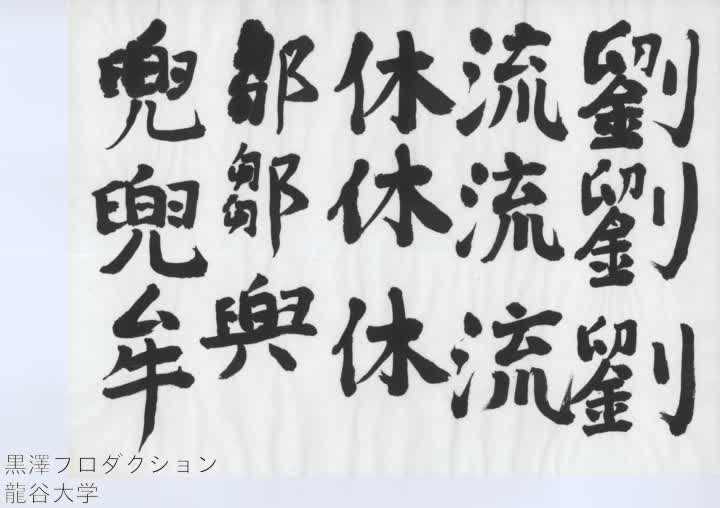 劉劉劉
流流流
休休休
鄒鄒輿
兜兜牟
黒澤フロダクション
龍谷大学